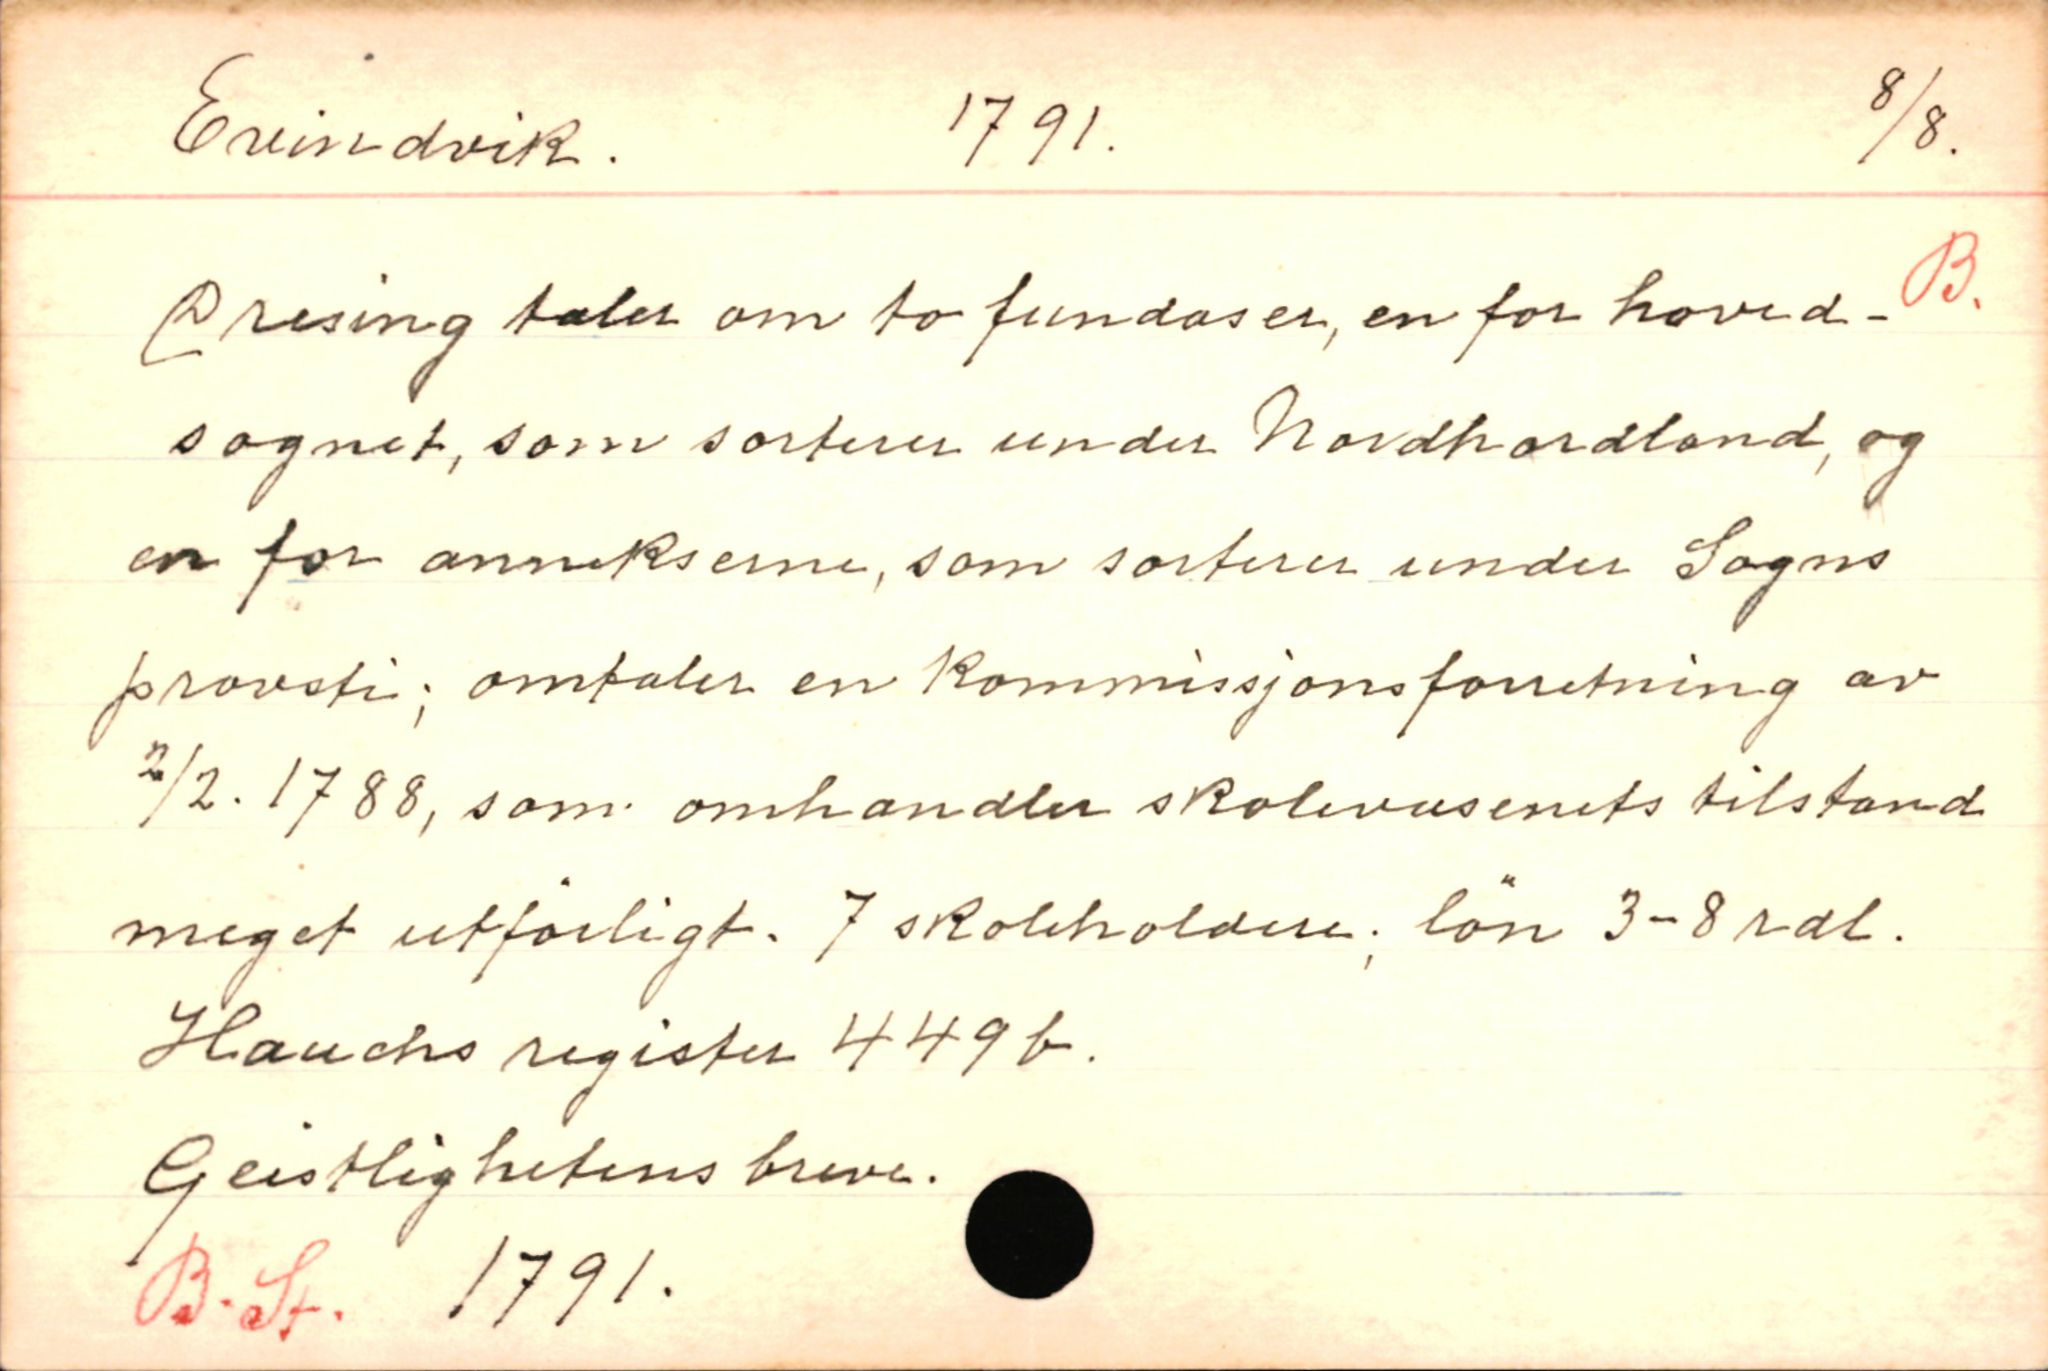 Evindvik. 1791. 8/8.
B.
Presing taler om to fundaser, en for hoved-
sognet, som sorterer under Nordhordland, og
en for annekserne, som sorterer under Sogns
provsti; omtaler en kommissjonsforretning av
2/2. 1788, som omhandler skolevæsenets tilstand
meget utförligt. 7 skoleholdere; lön 3-8 rdl.
Hauchs register 449b.
Geistlighetens breve.
B. St. 1791.